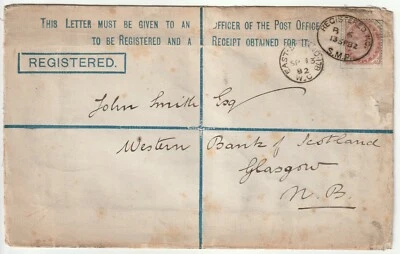 THIS LETTER MUST BE GIVEN TO AN OFFICER OF THE POST OFFICE
TO BE REGISTERED AND A RECEIPT OBTAINED FOR IT.
REGISTERED.
REGISTERED
13 SP 82
S.M.P.
EAST
SP 13
82
W.C
John Smith Esq
Western Bank of Scotland
Glasgow
N.B.